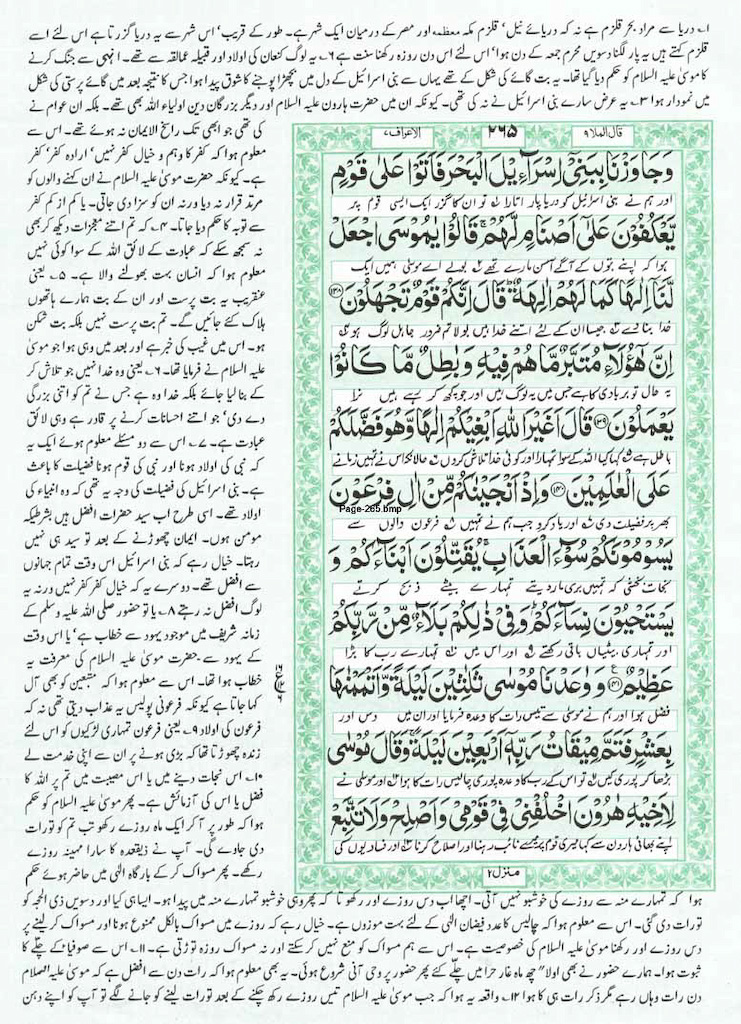 ۱؎ دریا سے مراد بحر قلزم ہے نہ کہ دریائے نیل' قلزم مکہ معظمہ اور مصر کے درمیان ایک شہر ہے۔ طور کے قریب' اس شہر سے یہ دریا گزرتا ہے اس لئے اسے
قلزم کہتے ہیں یہ پار لگنا دسویں محرم جمعہ کے دن ہوا' اس لئے اس دن روزہ رکھنا سنت ہے ۲؎ یہ لوگ کنعان کی اولاد اور قبیلہ عمالقہ سے تھے۔ انہی سے جنگ کرنے
کا موسیٰ علیہ السلام کو حکم دیا گیا تھا۔ یہ بت گائے کی شکل کے تھے یہاں سے بنی اسرائیل کے دل میں بچھڑا پوجنے کا شوق پیدا ہوا جس کا نتیجہ بعد میں گائے پرستی کی شکل
میں نمودار ہوا ۳؎ یہ عرض سارے بنی اسرائیل نے نہ کی تھی۔ کیونکہ ان میں حضرت ہارون علیہ السلام اور دیگر بزرگان دین اولیاء اللہ بھی تھے۔ بلکہ ان عوام نے
قال الملا ۹
۲۶۵
الاعراف ۷
وَجَاوَزْنَا بِبَنِيْٓ اِسْرَآءِيْلَ الْبَحْرَ فَاَتَوْا عَلٰى قَوْمٍ
اور ہم نے بنی اسرائیل کو دریا پار اتارا تو ان کا گزر ایک ایسی قوم پر
يَّعْكُفُوْنَ عَلٰٓى اَصْنَامٍ لَّهُمْ ۚ قَالُوْا يٰمُوْسَى اجْعَلْ
ہوا کہ اپنے بتوں کے آگے آسن مارے تھے بولے اے موسیٰ ہمیں ایک
لَّنَآ اِلٰهًا كَمَا لَهُمْ اٰلِهَةٌ ؕ قَالَ اِنَّكُمْ قَوْمٌ تَجْهَلُوْنَ ﴿۱۳۸﴾
خدا بنا دے جیسا ان کے لئے اتنے خدا ہیں بولا تم ضرور جاہل لوگ ہو
اِنَّ هٰٓؤُلَآءِ مُتَبَّرٌ مَّا هُمْ فِيْهِ وَبٰطِلٌ مَّا كَانُوْا
یہ حال تو بربادی کا ہے جس میں یہ لوگ ہیں اور جو کچھ کر رہے ہیں نرا
يَعْمَلُوْنَ ﴿۱۳۹﴾ قَالَ اَغَيْرَ اللّٰهِ اَبْغِيْكُمْ اِلٰهًا وَّهُوَ فَضَّلَكُمْ
باطل ہے کہا کیا اللہ کے سوا تمہارا اور کوئی خدا تلاش کروں حالانکہ اس نے تمہیں زمانے
عَلَى الْعٰلَمِيْنَ ﴿۱۴۰﴾ وَاِذْ اَنْجَيْنٰكُمْ مِّنْ اٰلِ فِرْعَوْنَ
Page-265.bmp
بھر پر فضیلت دی اور یاد کرو جب ہم نے تمہیں فرعون والوں سے
يَسُوْمُوْنَكُمْ سُوْٓءَ الْعَذَابِ ۚ يُقَتِّلُوْنَ اَبْنَآءَكُمْ وَ
نجات بخشی کہ تمہیں بری مار دیتے تمہارے بیٹے ذبح کرتے
يَسْتَحْيُوْنَ نِسَآءَكُمْ ؕ وَفِيْ ذٰلِكُمْ بَلَآءٌ مِّنْ رَّبِّكُمْ
اور تمہاری بیٹیاں باقی رکھتے اور اس میں تمہارے رب کا بڑا
عَظِيْمٌ ﴿۱۴۱﴾ وَوٰعَدْنَا مُوْسٰى ثَلٰثِيْنَ لَيْلَةً وَّاَتْمَمْنٰهَا
فضل ہوا اور ہم نے موسیٰ سے تیس رات کا وعدہ فرمایا اور ان میں دس اور
بِعَشْرٍ فَتَمَّ مِيْقَاتُ رَبِّهٖٓ اَرْبَعِيْنَ لَيْلَةً ۚ وَقَالَ مُوْسٰى
بڑھا کر پوری کیں تو اس کے رب کا وعدہ پوری چالیس رات کا ہوا اور موسیٰ نے
لِاَخِيْهِ هٰرُوْنَ اخْلُفْنِيْ فِيْ قَوْمِيْ وَاَصْلِحْ وَلَا تَتَّبِعْ
اپنے بھائی ہارون سے کہا میری قوم پر میرے نائب رہنا اور اصلاح کرنا اور فسادیوں کی
منزل ۲
کی تھی جو ابھی تک راسخ الایمان نہ ہوئے تھے۔ اس سے
معلوم ہوا کہ کفر کا وہم و خیال کفر نہیں' ارادہ کفر' کفر
ہے۔ کیونکہ حضرت موسیٰ علیہ السلام نے ان کہنے والوں کو
مرتد قرار نہ دیا ورنہ ان کو سزا دی جاتی۔ یا کم از کم کفر
سے توبہ کا حکم دیا جاتا۔ ۴؎ کہ تم اتنے معجزات دیکھ کر بھی
نہ سمجھ سکے کہ عبادت کے لائق اللہ کے سوا کوئی نہیں
معلوم ہوا کہ انسان بہت بھولنے والا ہے۔ ۵؎ یعنی
عنقریب یہ بت پرست اور ان کے بت ہمارے ہاتھوں
ہلاک کئے جائیں گے۔ تم بت پرست نہیں بلکہ بت شکن
ہو۔ اس میں غیب کی خبر ہے اور بعد میں وہی ہوا جو موسیٰ
علیہ السلام نے فرمایا تھا۔ ۶؎ یعنی وہ خدا نہیں جو تلاش کر
کے بنا لیا جائے بلکہ خدا وہ ہے جس نے تم کو اتنی بزرگی
دے دی' جو اتنے احسانات کرنے پر قادر ہے وہی لائق
عبادت ہے۔ ۷؎ اس سے دو مسئلے معلوم ہوئے ایک یہ
کہ نبی کی اولاد ہونا اور نبی کی قوم ہونا فضیلت کا باعث
ہے۔ بنی اسرائیل کی فضیلت کی وجہ یہ تھی کہ وہ انبیاء کی
اولاد تھے۔ اسی طرح اب سید حضرات افضل ہیں بشرطیکہ
مومن ہوں۔ ایمان چھوڑنے کے بعد تو سید ہی نہیں
رہتا۔ خیال رہے کہ بنی اسرائیل اس وقت تمام جہانوں
سے افضل تھے۔ دوسرے یہ کہ خیال کفر کفر نہیں ورنہ یہ
لوگ افضل نہ رہتے ۸؎ یا تو حضور صلی اللہ علیہ وسلم کے
زمانہ شریف میں موجود یہود سے خطاب ہے' یا اس وقت
کے یہود سے حضرت موسیٰ علیہ السلام کی معرفت یہ
خطاب ہوا تھا۔ اس سے معلوم ہوا کہ متبعین کو بھی آل
کہا جاتا ہے کیونکہ فرعونی پولیس یہ عذاب دیتی تھی نہ کہ
فرعون کی اولاد ۹؎ یعنی فرعون تمہاری لڑکیوں کو اس لئے
زندہ چھوڑتا تھا کہ بڑی ہونے پر ان سے اپنی خدمت لے
۱۰؎ اس نجات دینے میں یا اس مصیبت میں تم پر اللہ کا
فضل یا اس کی آزمائش ہے۔ پھر موسیٰ علیہ السلام کو حکم
ہوا کہ طور پر آ کر ایک ماہ روزے رکھو تب تم کو تورات
دی جاوے گی۔ آپ نے ذیقعدہ کا سارا مہینہ روزے
رکھے۔ پھر مسواک کر کے بارگاہ الٰہی میں حاضر ہوئے حکم
ہوا کہ تمہارے منہ سے روزے کی خوشبو نہیں آتی۔ اچھا اب دس روزے اور رکھو تا کہ پھر وہی خوشبو تمہارے منہ میں پیدا ہو۔ ایسا ہی کیا اور دسویں ذی الحجہ کو
تورات دی گئی۔ اس سے معلوم ہوا کہ چالیس کا عدد فیضان الٰہی کے لئے بہت موزوں ہے۔ خیال رہے کہ روزے میں مسواک بالکل ممنوع ہونا اور مسواک کر لینے پر
دس روزے اور رکھنا موسیٰ علیہ السلام کی خصوصیت ہے۔ اس سے ہم مسواک کو منع نہیں کر سکتے اور نہ مسواک روزہ توڑتی ہے۔ ۱۱؎ اس سے صوفیا کے چلے کا
ثبوت ہوا۔ ہمارے حضور نے بھی اولاً چھ ماہ غار حرا میں چلے کئے پھر حضور پر وحی آنی شروع ہوئی۔ یہ بھی معلوم ہوا کہ رات دن سے افضل ہے کہ موسیٰ علیہ الصلاۃ والسلام
دن رات وہاں رہے مگر ذکر رات ہی کا ہوا ۱۲؎ واقعہ یہ ہوا کہ جب موسیٰ علیہ السلام تیس روزے رکھ چکنے کے بعد تورات لینے کو جانے لگے تو آپ کو اپنے دہن